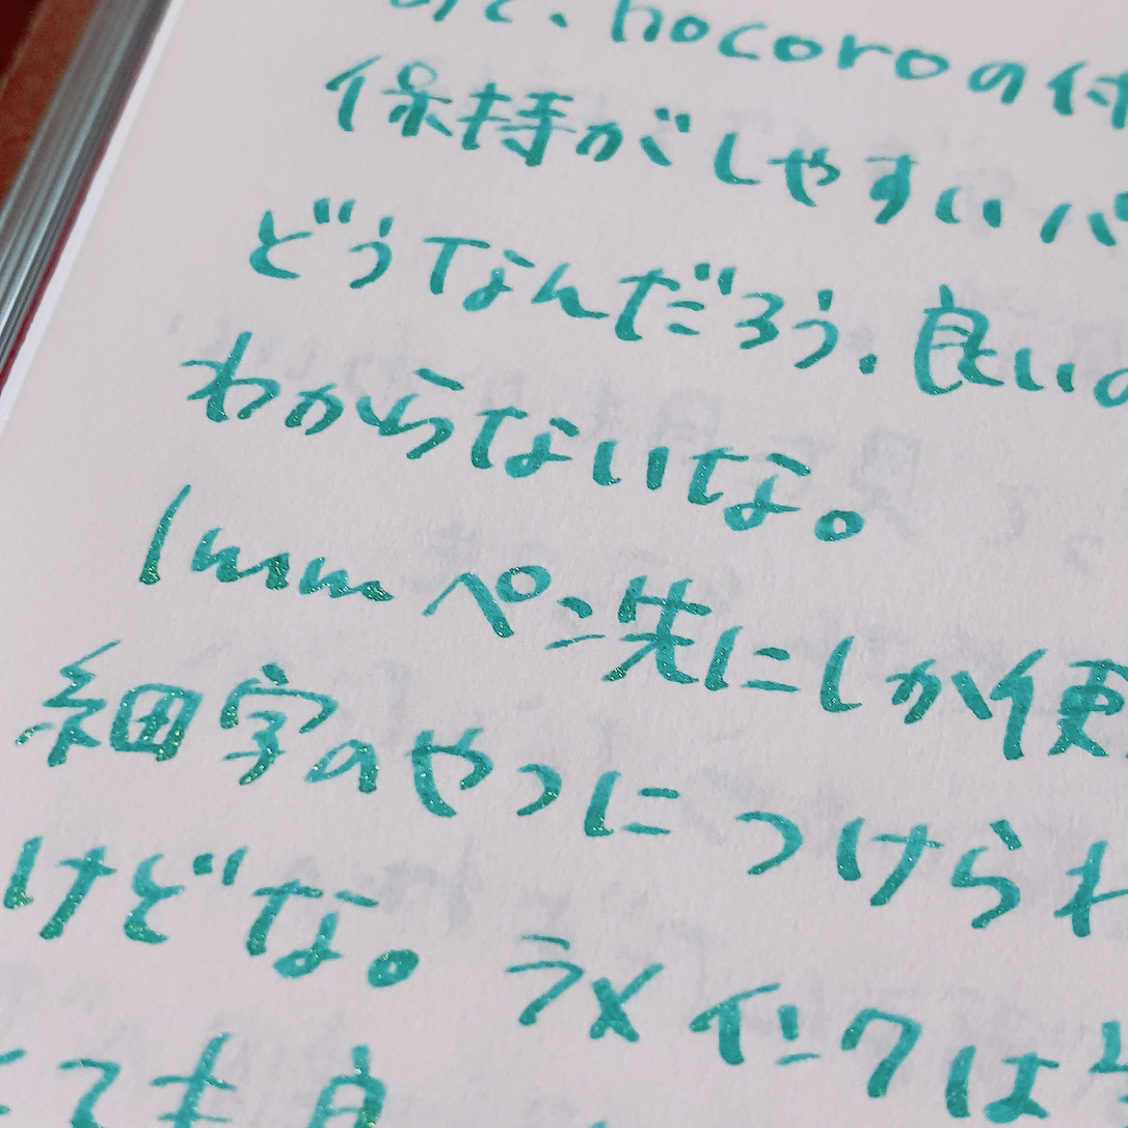 hocoroの付
保持がしやすいパ
どうなんだろう.良いの
わからないな。
1mmペン先にしか使
細字のやつにつけられ
けどな。ラメインクは
ても良